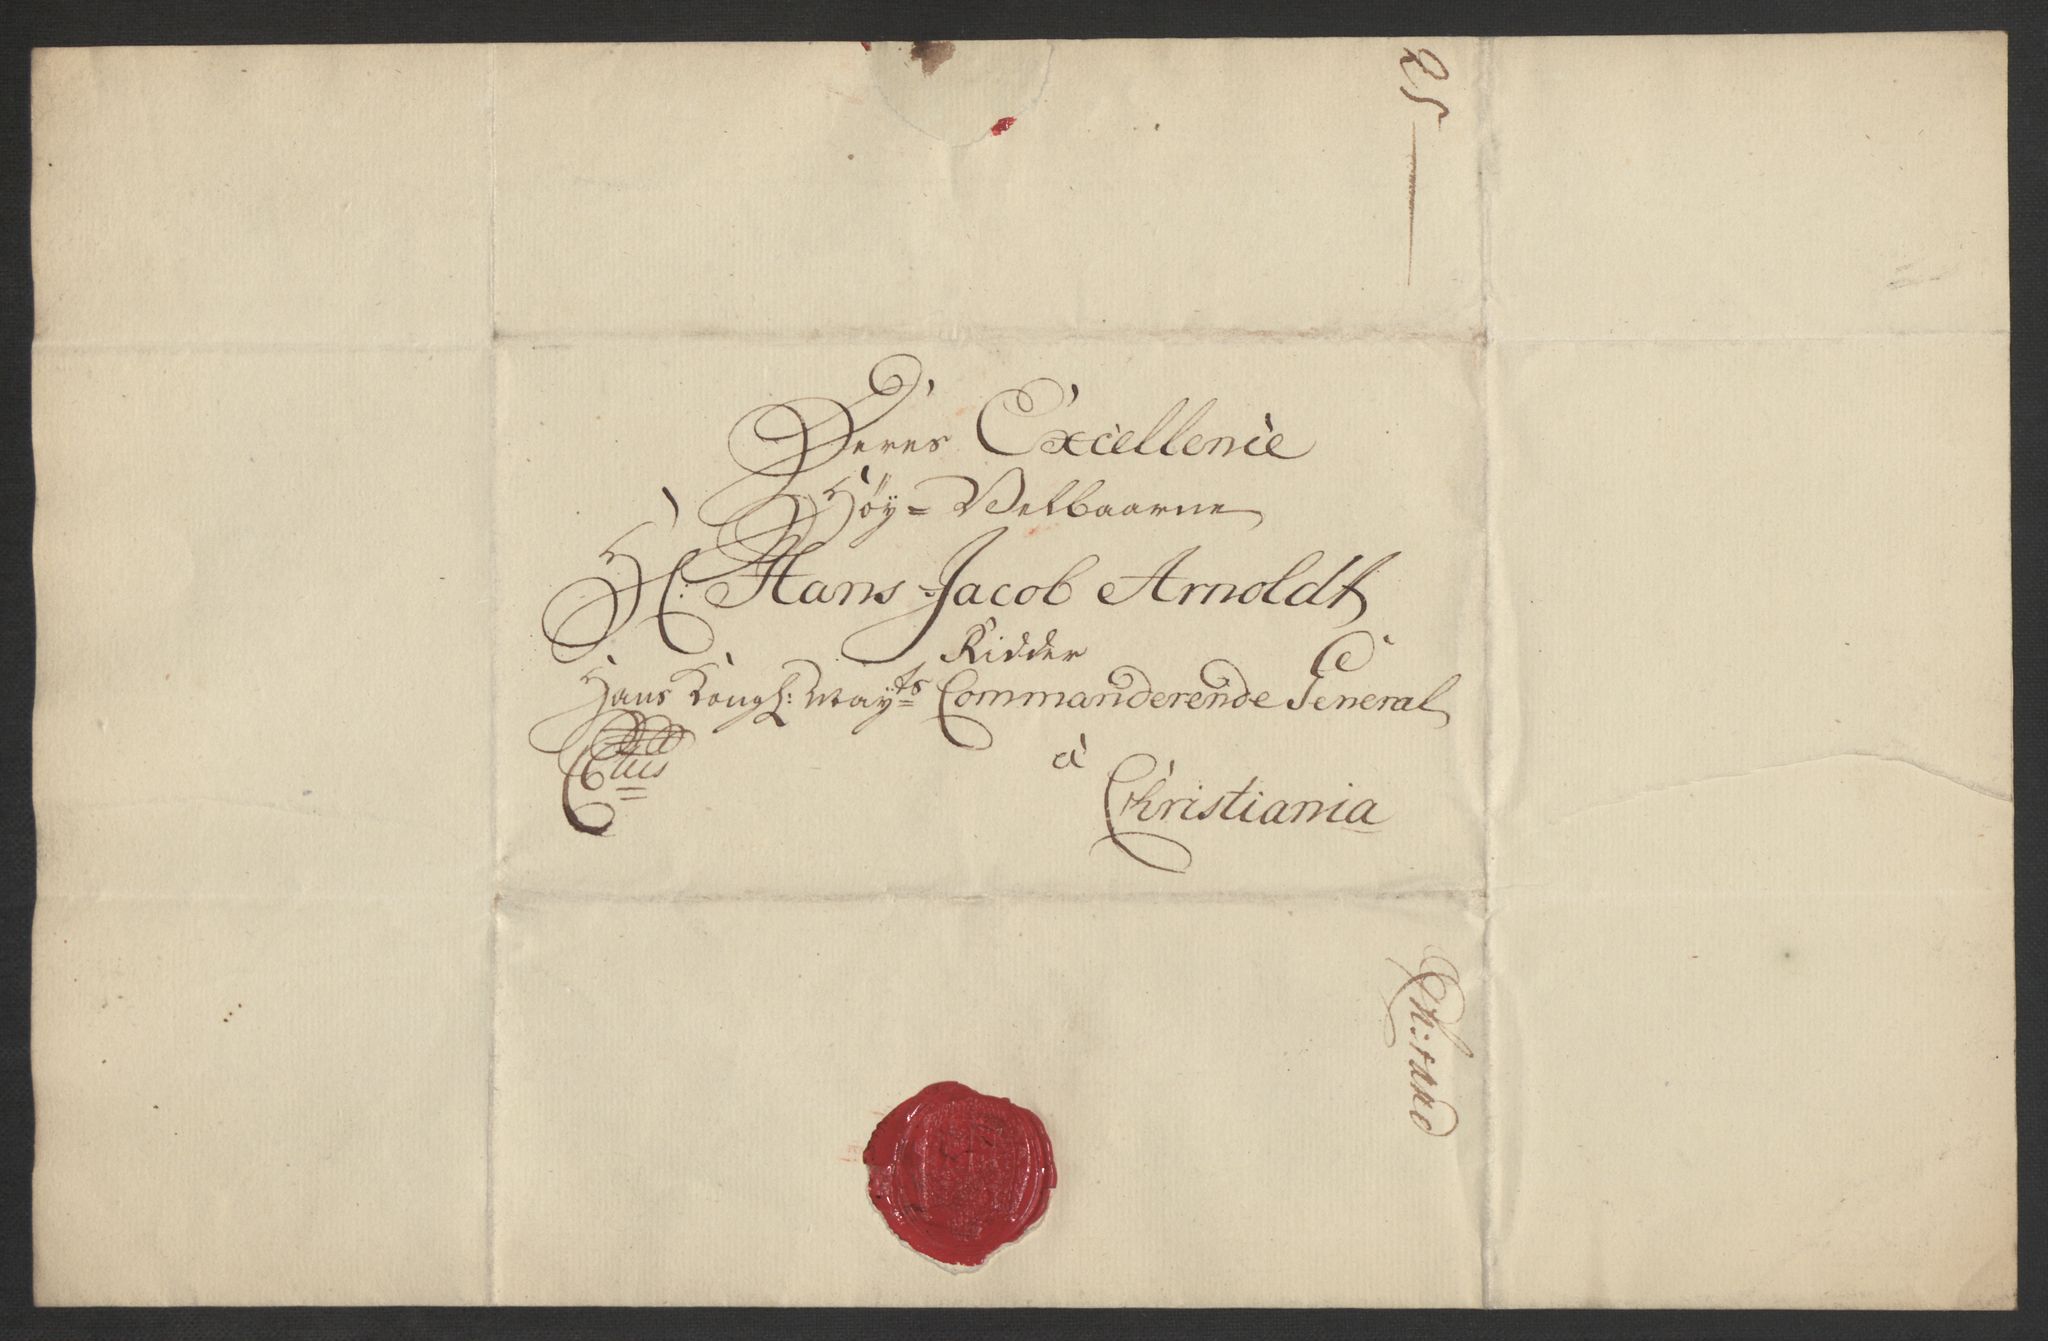 25
Deres Excellence
Høy=Velbaarne
Hr: Hans Jacob Arnoldt
Ridder
Hans Kongl: Mayts Commanderende General
à
Christiania
Ch:sand